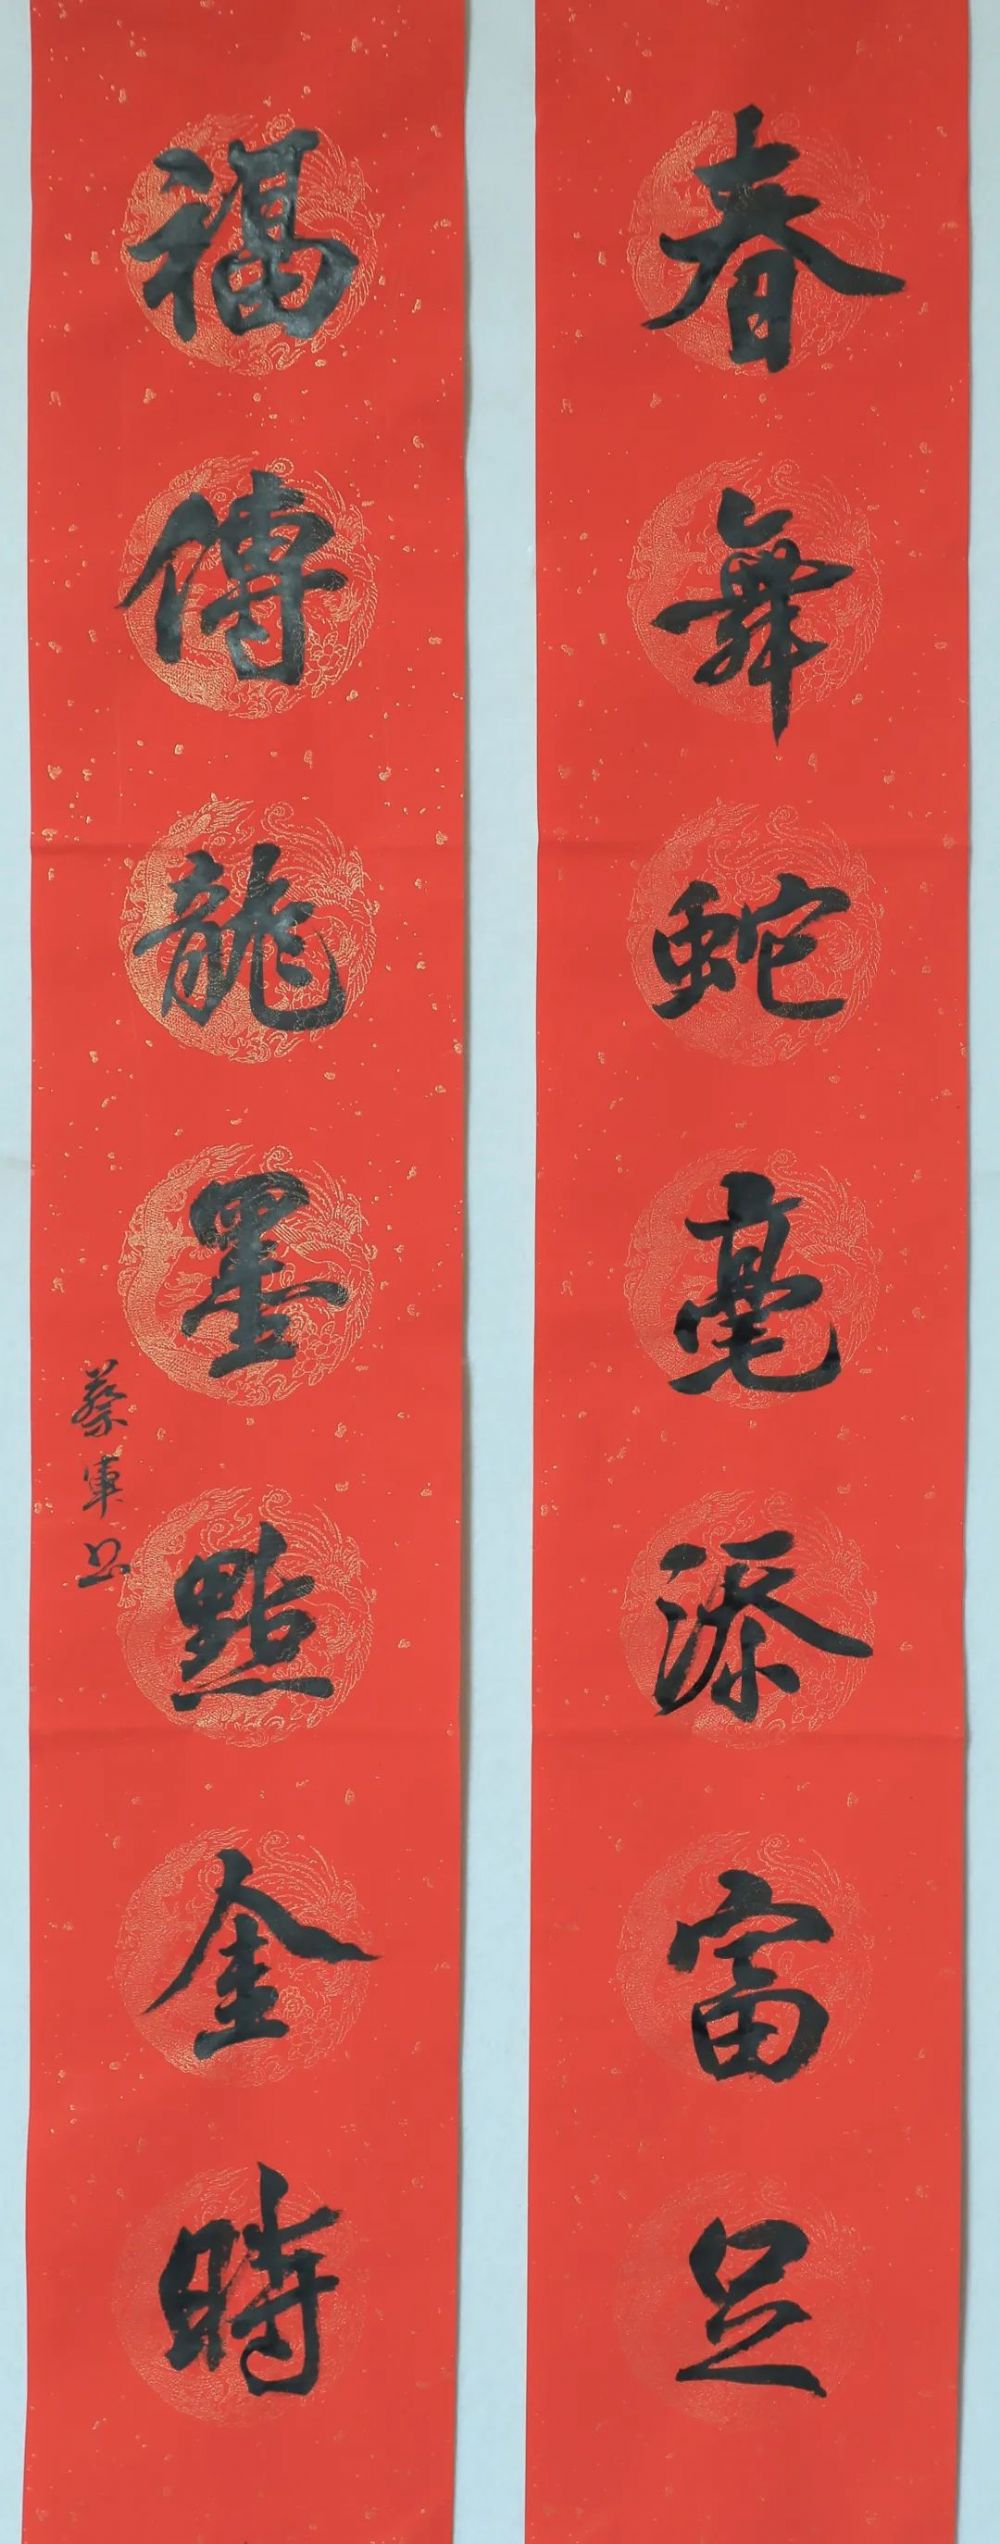 春舞蛇毫添富足
福傳龍墨點金時
蔡軍书